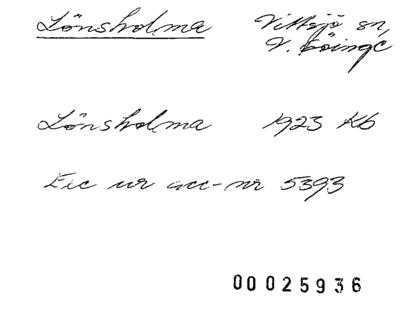 Lönsholma Vittsjö sn,
V. Göinge
Lönsholma 1923 Kb
Exc ur acc-nr 5393
00025936